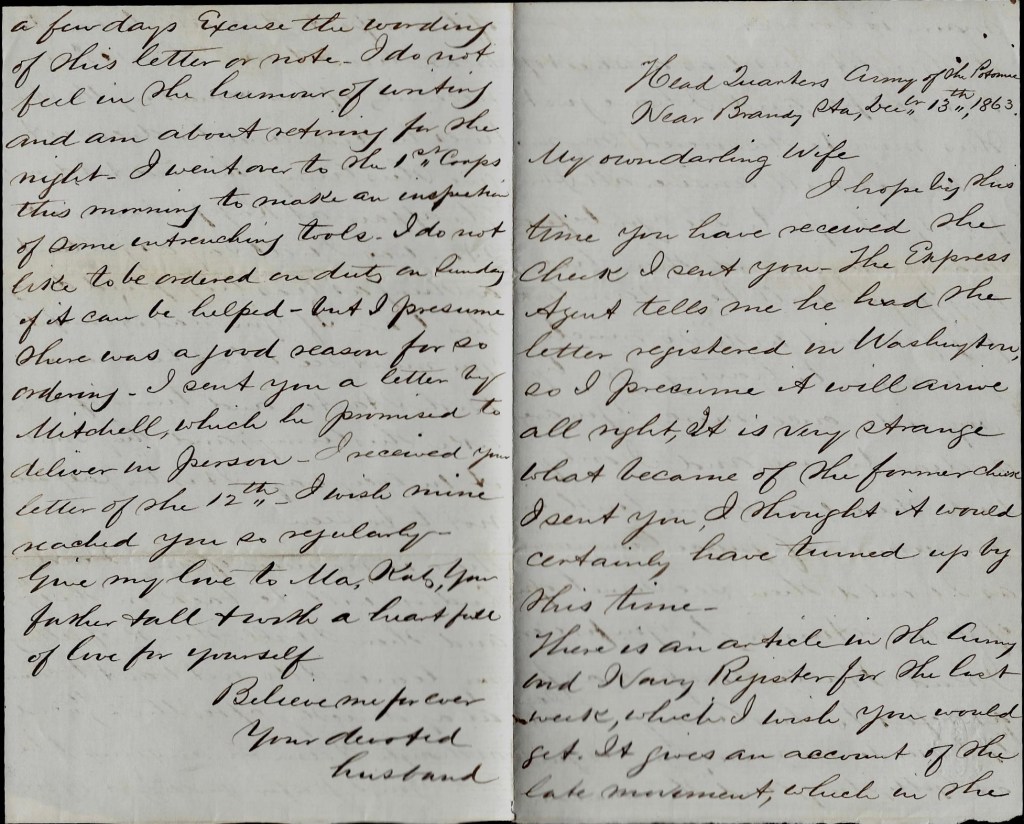 Head Quarters Army of the Potomac
Near Brandy Sta, Decbr 13th, 1863.
My own darling Wife
I hope by this
time you have received the
Check I sent you - The Express
Agent tells me he had the
letter registered in Washington,
so I presume it will arrive
all right, It is very strange
what became of the former check
I sent you, I thought it would
certainly have turned up by
this time -
There is an article in the Army
and Navy Register for the last
week, which I wish you would
get. It gives an account of the
late movement, which in the
a few days Excuse the wording
of this letter or note - I do not
feel in the humour of writing
and am about retiring for the
night - I went over to the 1st Corps
this morning to make an inspection
of some intrenching tools - I do not
like to be ordered on duty on Sunday
if it can be helped - but I presume
there was a good reason for so
ordering - I sent you a letter by
Mitchell, which he promised to
deliver in person - I received your
letter of the 12th - I wish mine
reached you so regularly -
Give my love to Ma, Kate, Your
father & all & with a heart full
of love for yourself
Believe me for ever
Your devoted
husband